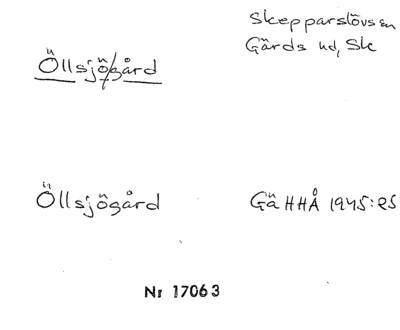 Öllsjögård
Skepparslövs sn
Gärds hd, Sk
Öllsjögård
GäHHÅ 1945:25
Nr 17063